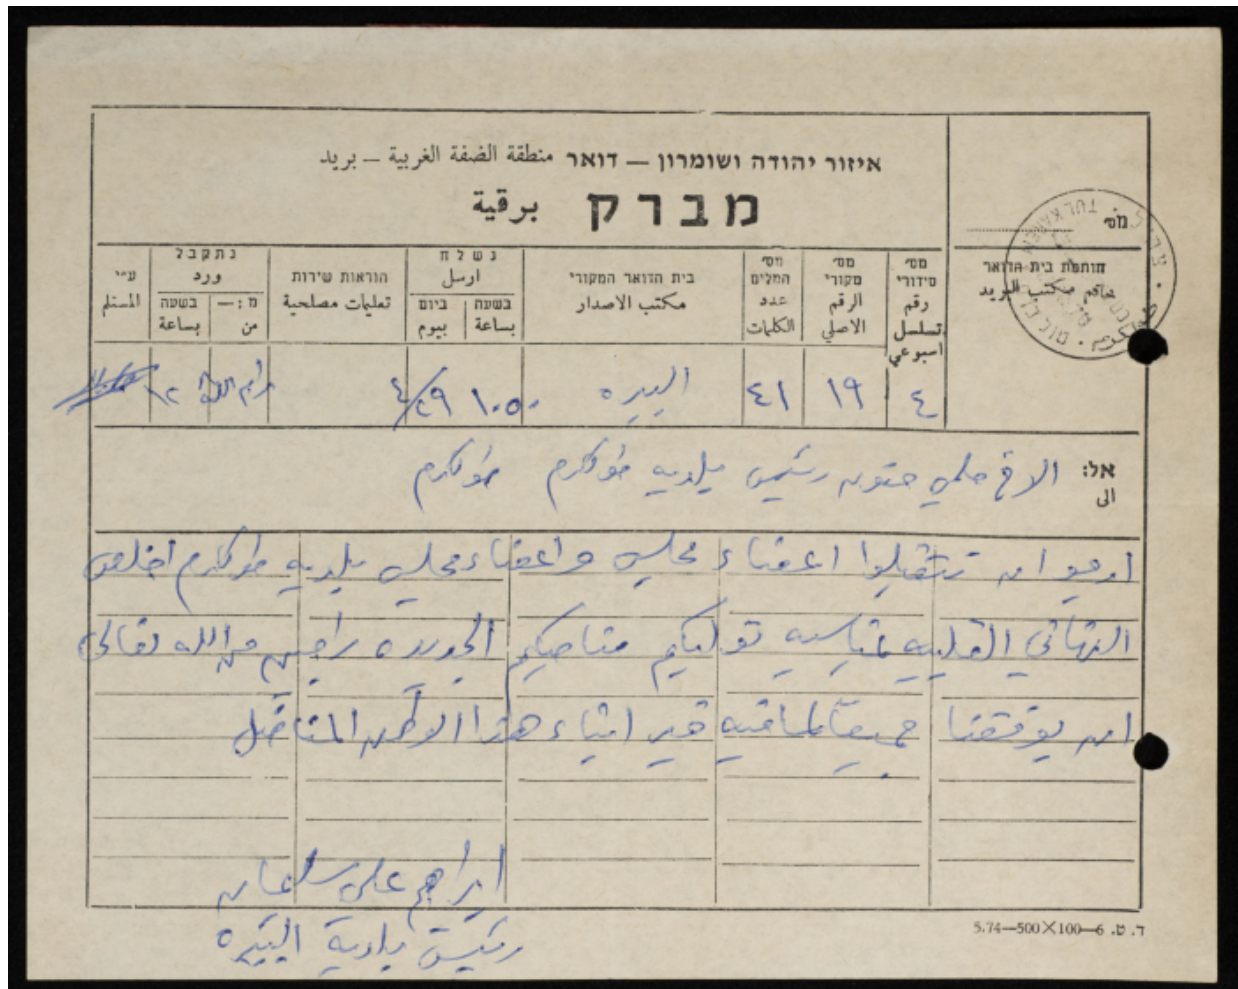 איזור יהודה ושומרון — דואר منطقة الضفة الغربية — بريد
מברק برقية
מס׳
חותמת בית הדואר
خاتم مكتب البريد
TULKAREM
טולכרם
طولكرم
מס׳ סידורי
رقم تسلسل اسبوعي
מס׳ מקורי
الرقم الاصلي
מס׳ המלים
عدد الكلمات
בית הדואר המקורי
مكتب الاصدار
נשלח
ارسل
בשעה
بساعة
ביום
بيوم
הוראות שירות
تعليمات مصلحية
נתקבל
ورد
מ:—
من
בשעה
بساعة
ע״י
المستلم
٤ ١٩ ٤١ البيره ١٠٥٠ ٢٩/٤ رام الله ١٢
אל: الاخ حلمي حنون رئيس بلديه طولكرم طولكرم
الى
ارجو ان تتقبلوا اعضاء مجلس واعضاء مجلس بلديه طولكرم اخلص
التهاني القلبيه بمناسبه توليكم مناصبكم الجديده راجين من الله تعالى
ان يوفقنا جميعا لما فيه خير ابناء هذا الوطن المناضل
ابراهيم علي سليمان
رئيس بلدية البيره
ד. ט. 6—100×500—5.74